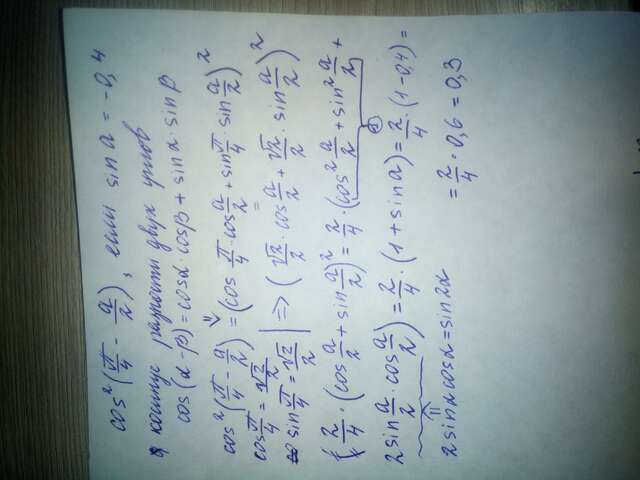 cos²(π/4 - a/2), если sin a = -0,4
косинус разности двух углов
cos(α-β) = cosα·cosβ + sinα·sinβ
cos²(π/4 - a/2) = (cos π/4 · cos a/2 + sin π/4 · sin a/2)²
cos π/4 = √2/2
sin π/4 = √2/2 | => (√2/2 · cos a/2 + √2/2 · sin a/2)²
(2/4 · (cos a/2 + sin a/2)² = 2/4 · (cos² a/2 + sin² a/2 +
2 sin a/2 · cos a/2) = 2/4 · (1 + sin a) = 2/4 · (1-0,4) =
2 sinα cosα = sin2α
= 2/4 · 0,6 = 0,3